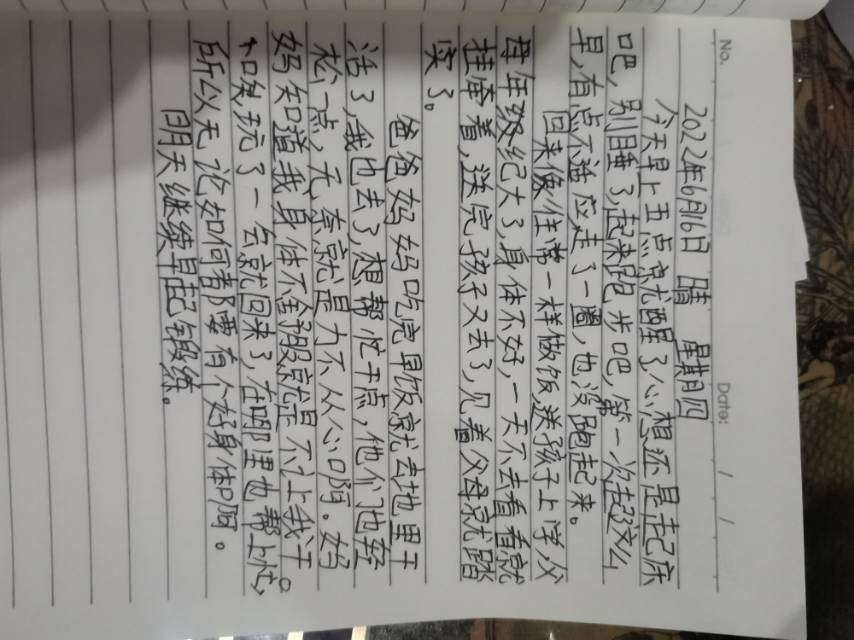 No.
Date: / /
2022年6月16日 晴 星期四
今天早上五点就醒了心想还是起床
吧,别睡了,起来跑步吧,第一次起这么
早,有点不适应走了一圈,也没跑起来。
回来像往常一样做饭,送孩子上学,父
母年级纪大了,身体不好,一天不去看看就
挂牵着,送完孩子又去了,见着父母就踏
实了。
爸爸妈妈吃完早饭就去地里干
活了,我也去了,想帮忙干点,他们也轻
松一点,无奈就是力不从心啊。妈
妈知道我身体不舒服就是不让我干。
和娘玩了一会就回来了,在哪里也帮上忙,
所以无论如何都要有个好身体啊。
明天继续早起锻练。